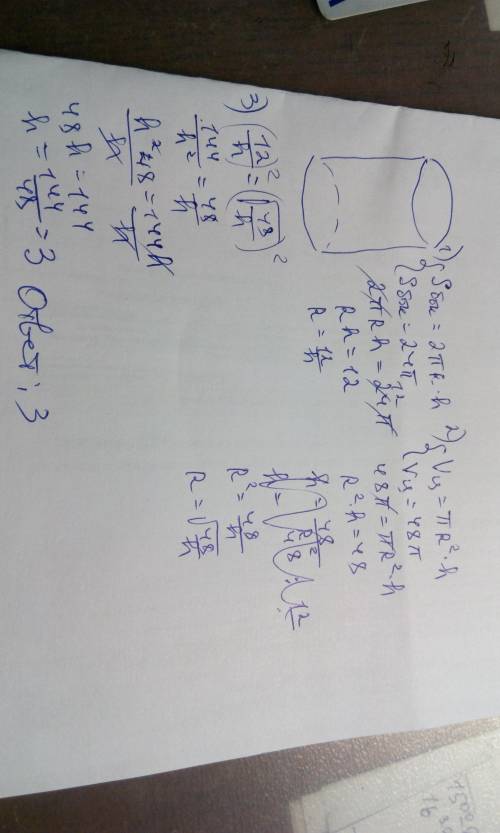 1) { Sбок = 2πR·h
Sбок = 24π
2πRh = 24π 12
Rh = 12
R = 12/h
2) { Vц = πR²·h
Vц = 48π
48π = πR²·h
R²·h = 48
h = 48/R²
R² = 48/h
R = √(48/h)
3) (12/h)² = (√(48/h))²
144/h² = 48/h
48h = 144
h = 144/48 = 3 Ответ: 3